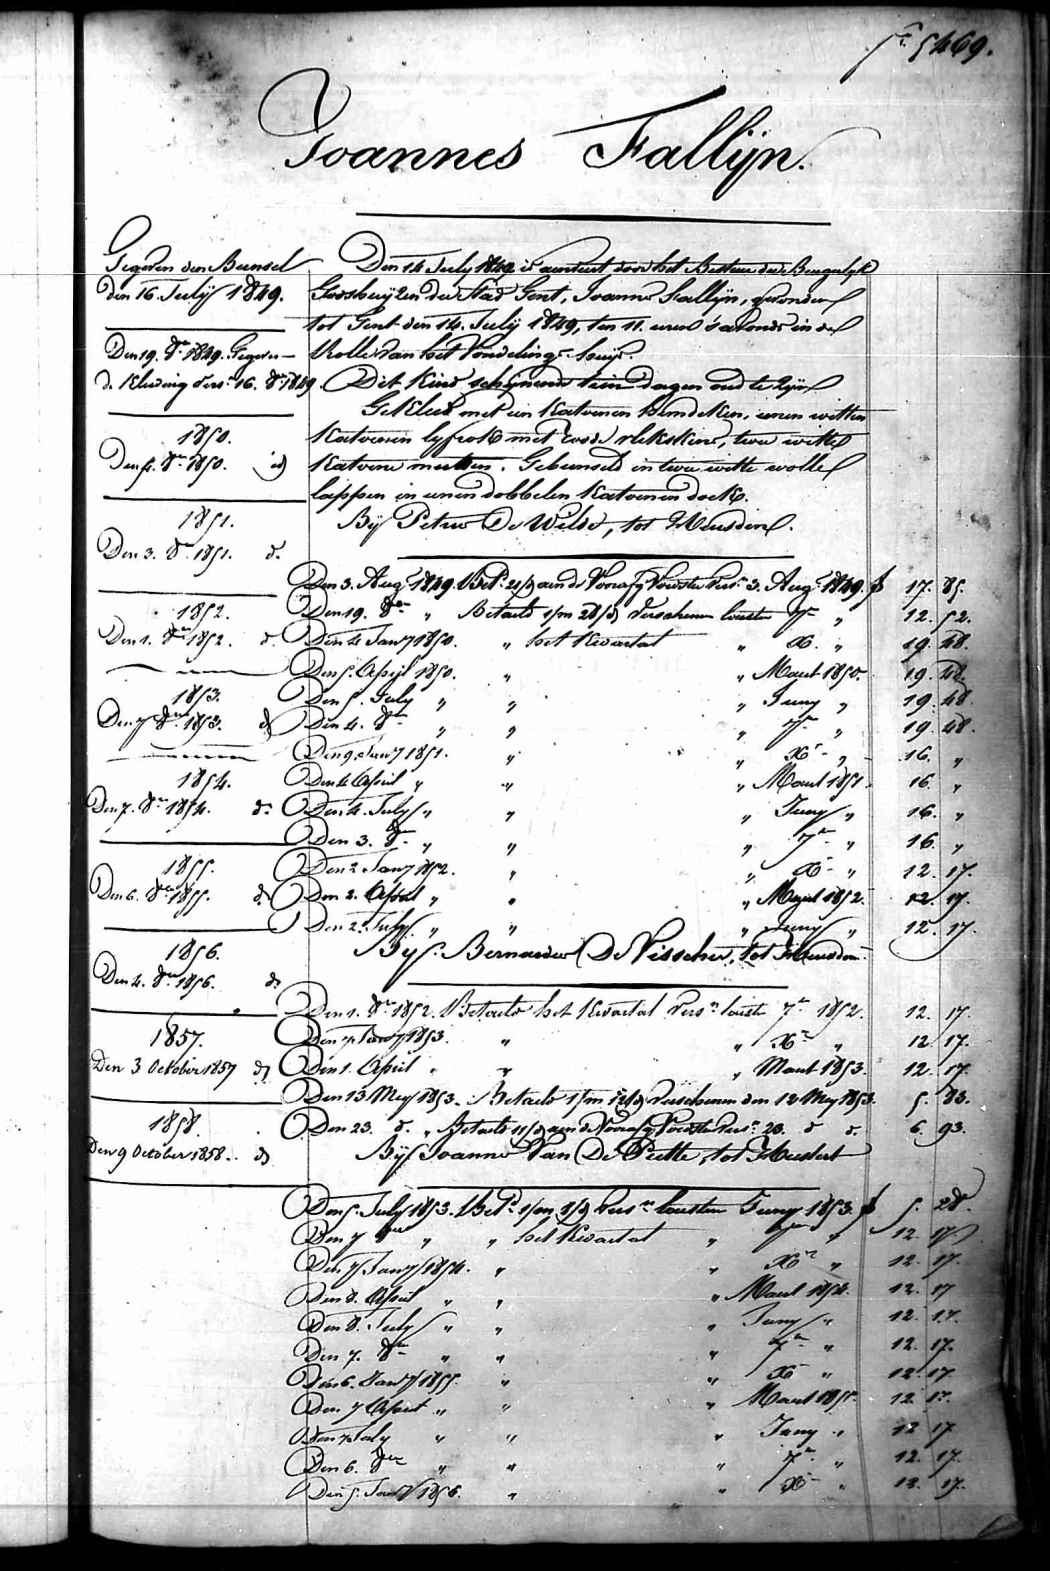 fo. 5469.
Joannes Fallijn.
Gegeven den Bunsel
den 16. Julij 1849.
Den 19. 8re 1849. Gegeven
d. Kleeding vers. 16. 8re 1849.
1850.
Den 5. 8re 1850. id
1851.
Den 3. 8re 1851. do.
1852.
Den 1. 8re 1852. do.
1853.
Den 7 8re 1853. do
1854.
Den 7. 8re 1854. do
1855.
Den 6. 8re 1855. do
1856.
Den 4. 8re 1856. do
1857.
Den 3 October 1857 do
1858.
Den 9 October 1858. do
Den 14 July 1849 is aenveert door het Bestuur der Burgerlyke
Godshuyzen der Stad Gent, Joannes Fallijn, gevonden
tot Gent den 14. Julij 1849, ten 11. uren 's avonds in de
Rolle van het Vondelings huys.
Dit Kind schijnende tien dagen oud te zijn
Gekleed met een Katoenen hemdeken, eenen witten
Katoenen lyfrok met roode vlekskens, twee witte
Katoene mutsen. Gebunseld in twee witte wolle
lappen in eenen dobbelen Katoenen doek.
Bij Petrus De Wilde, tot Heusden.
Den 3. Aug. 1849. Bet. 21/d aen de Voorafg Voedster vers. 3. Aug. 1849. f 17. 85.
Den 19. 8re " Betaeld 1/m 28/d verschenen laesten 7re " 12. 52.
Den 4 Janry 1850. " het Kwartael " Xre " 19. 48.
Den 5. April 1850. " " Maert 1850. 19. 48.
Den 5. July " " " Juny " 19. 48
Den 4. 8re " " " 7re " 19. 48.
Den 9. Janry 1851. " " Xre " 16. "
Den 4 April " " " Maert 1851. 16. "
Den 4. July " " " Juny " 16. "
Den 3. 8re " " " 7re " 16. "
Den 2 Janry 1852. " " Xre " 12. 17.
Den 2. April " " " Maert 1852. 12. 17.
Den 2. July " " " Juny " 12. 17.
Bij Bernardus De Visscher, tot Heusden
Den 1. 8re 1852. Betaeld het Kwartael vers. laeste 7re 1852. 12. 17.
Den 7 Janry 1853. " " Xre " 12 17.
Den 1. April " " " Maert 1853. 12. 17.
Den 13 Mey 1853. Betaeld 1/m 12/d verschenen den 12 Mey 1853. 5. 83.
Den 23. do. " Betaeld 11/d aen de Voorafg Voedster vers. 23. do do. 6. 93.
Bij Joannes Van De Putte, tot
Den 5. July 1853. Bet. 1/m 1/d vers. laesten Juny 1853. f 5. 28.
Den 7 8re " " het Kwartael " 7re " 12. 17
Den 7 Janry 1854. " " Xre " 12. 17.
Den 8. April " " " Maert 1854. 12. 17
Den 8. July " " " Juny " 12. 17.
Den 7. 8re " " " 7re " 12. 17.
Den 6. Janry 1855. " " Xre " 12. 17
Den 7 April " " " Maert 1855. 12. 17.
Den 7 July " " " Juny " 12 17
Den 6. 8re " " " 7re " 12. 17.
Den 5. Janry 1856. " " Xre " 12. 17.